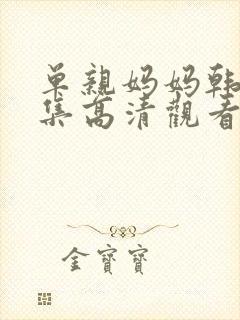 单亲妈妈韩
集高清觀看
金寶寶